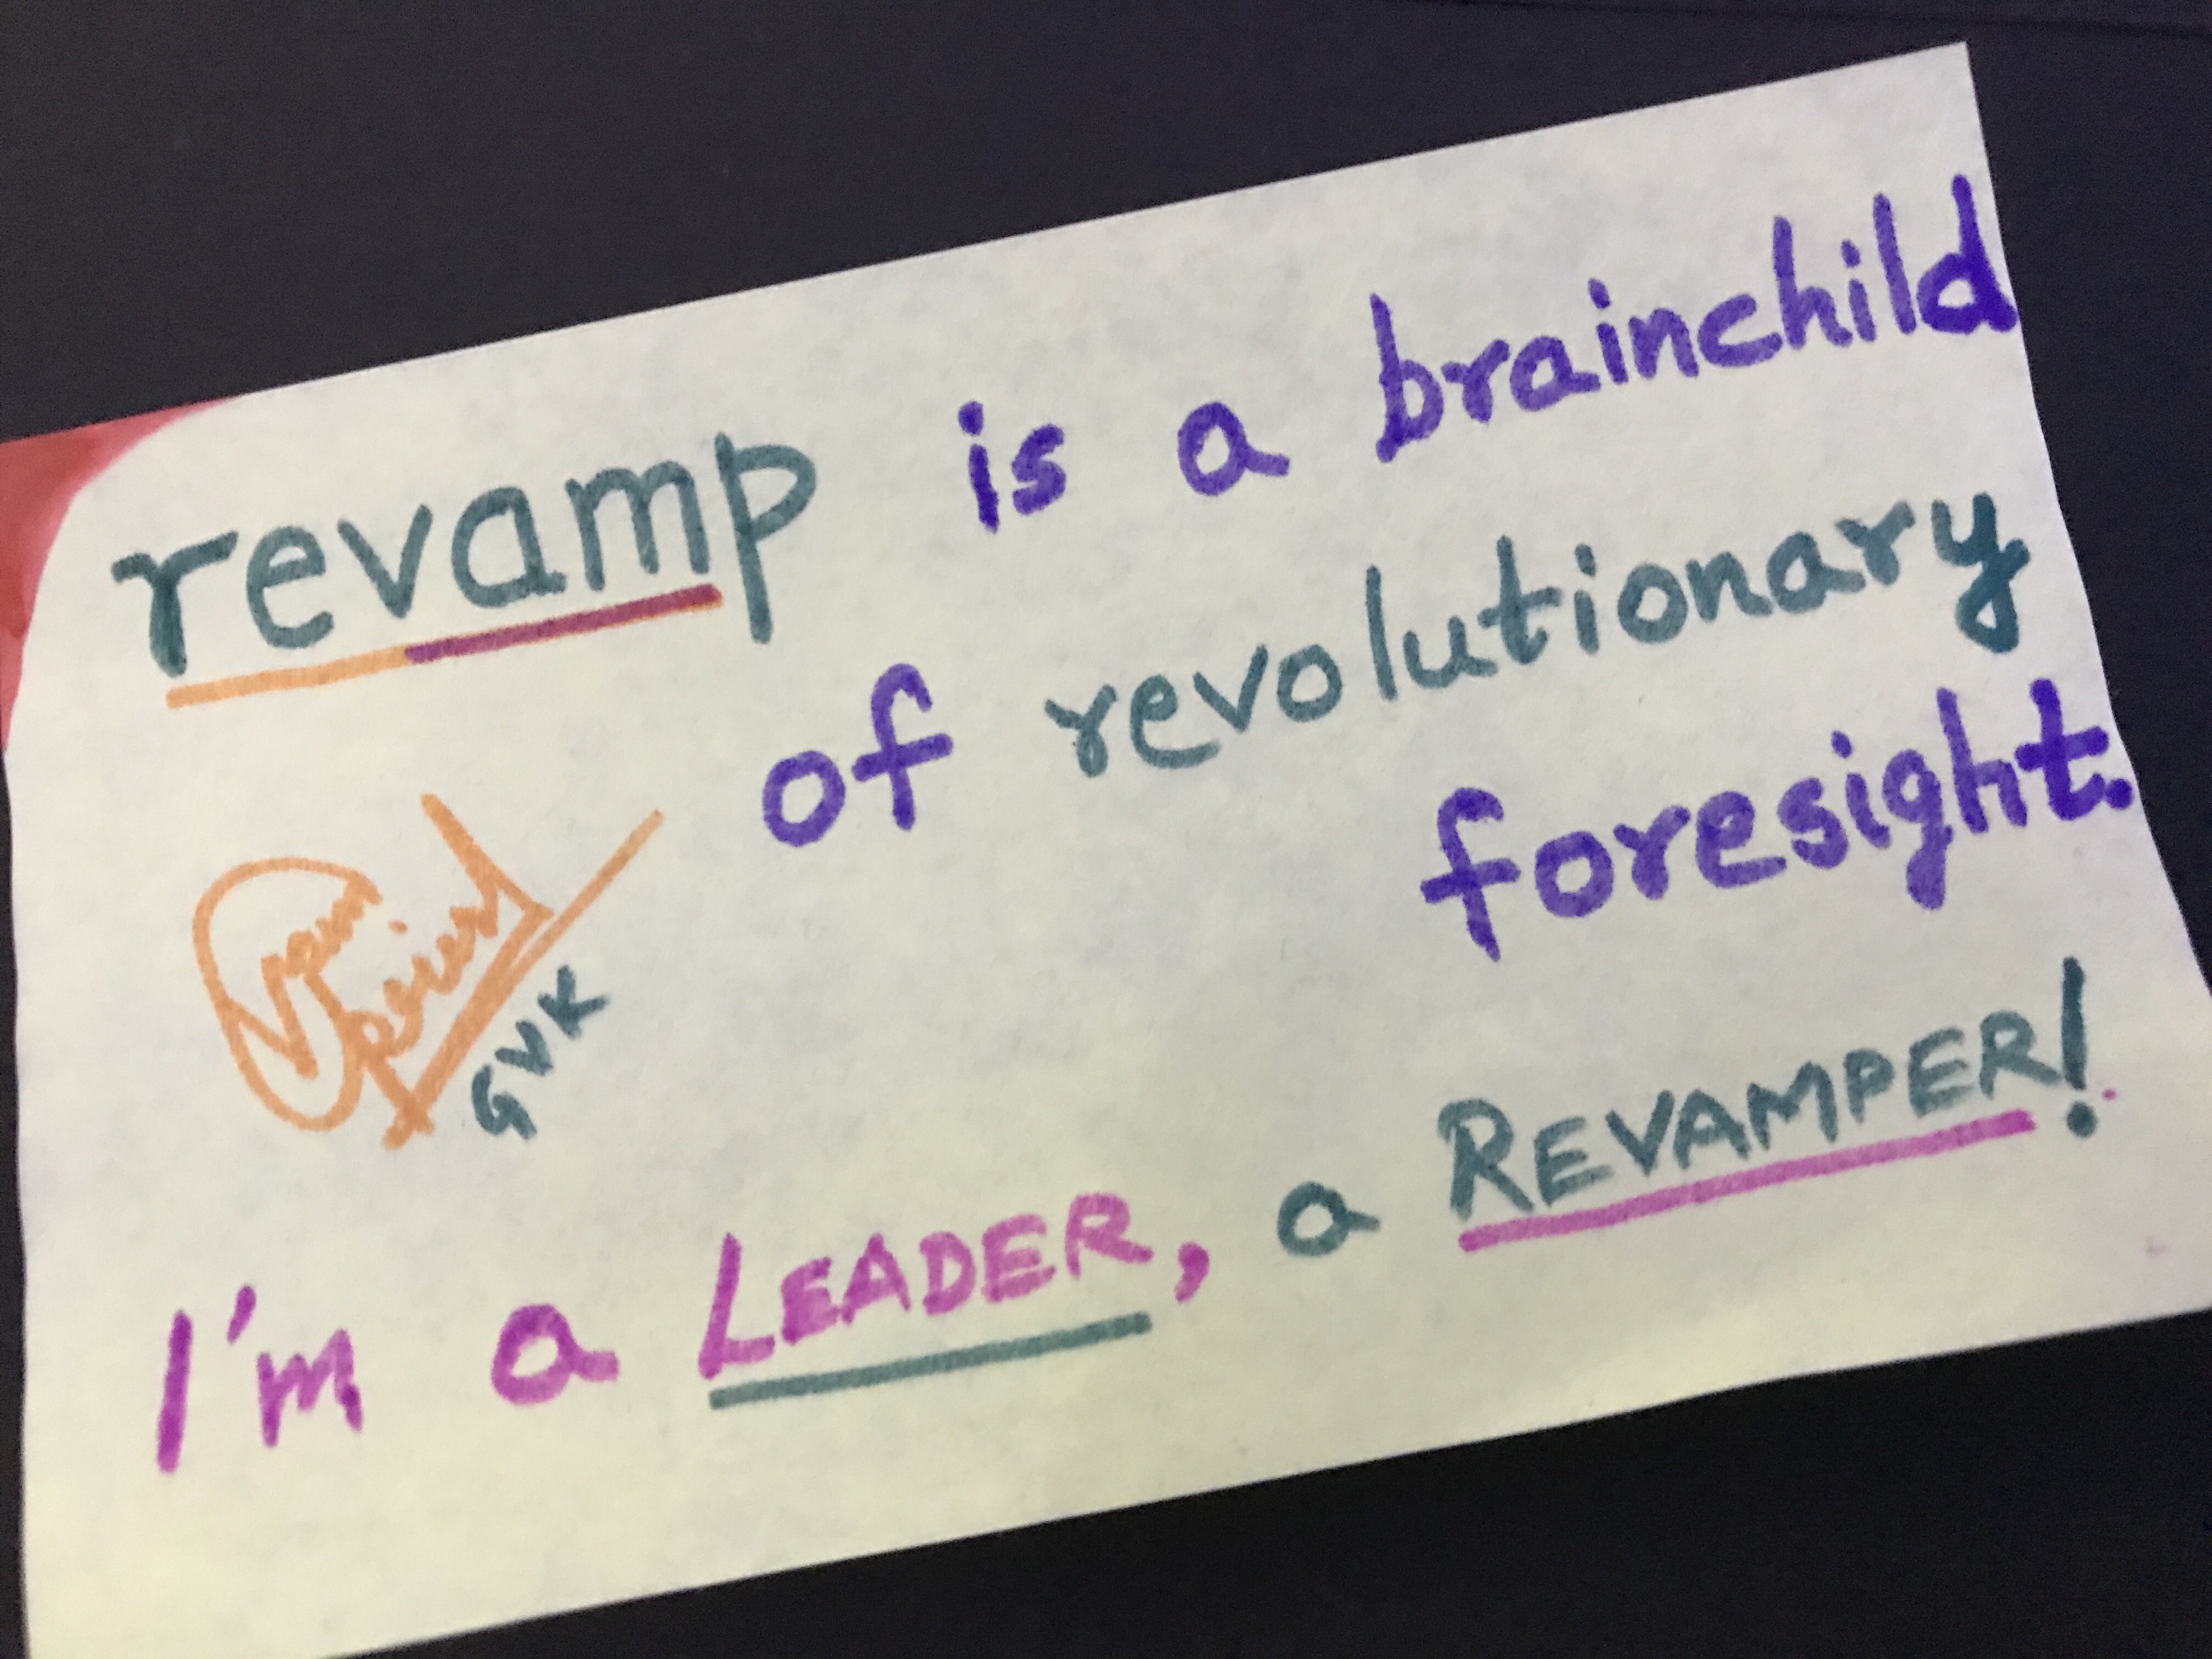 revamp is a brainchild
of revolutionary
foresight.
GVK
I'm a LEADER, a REVAMPER!